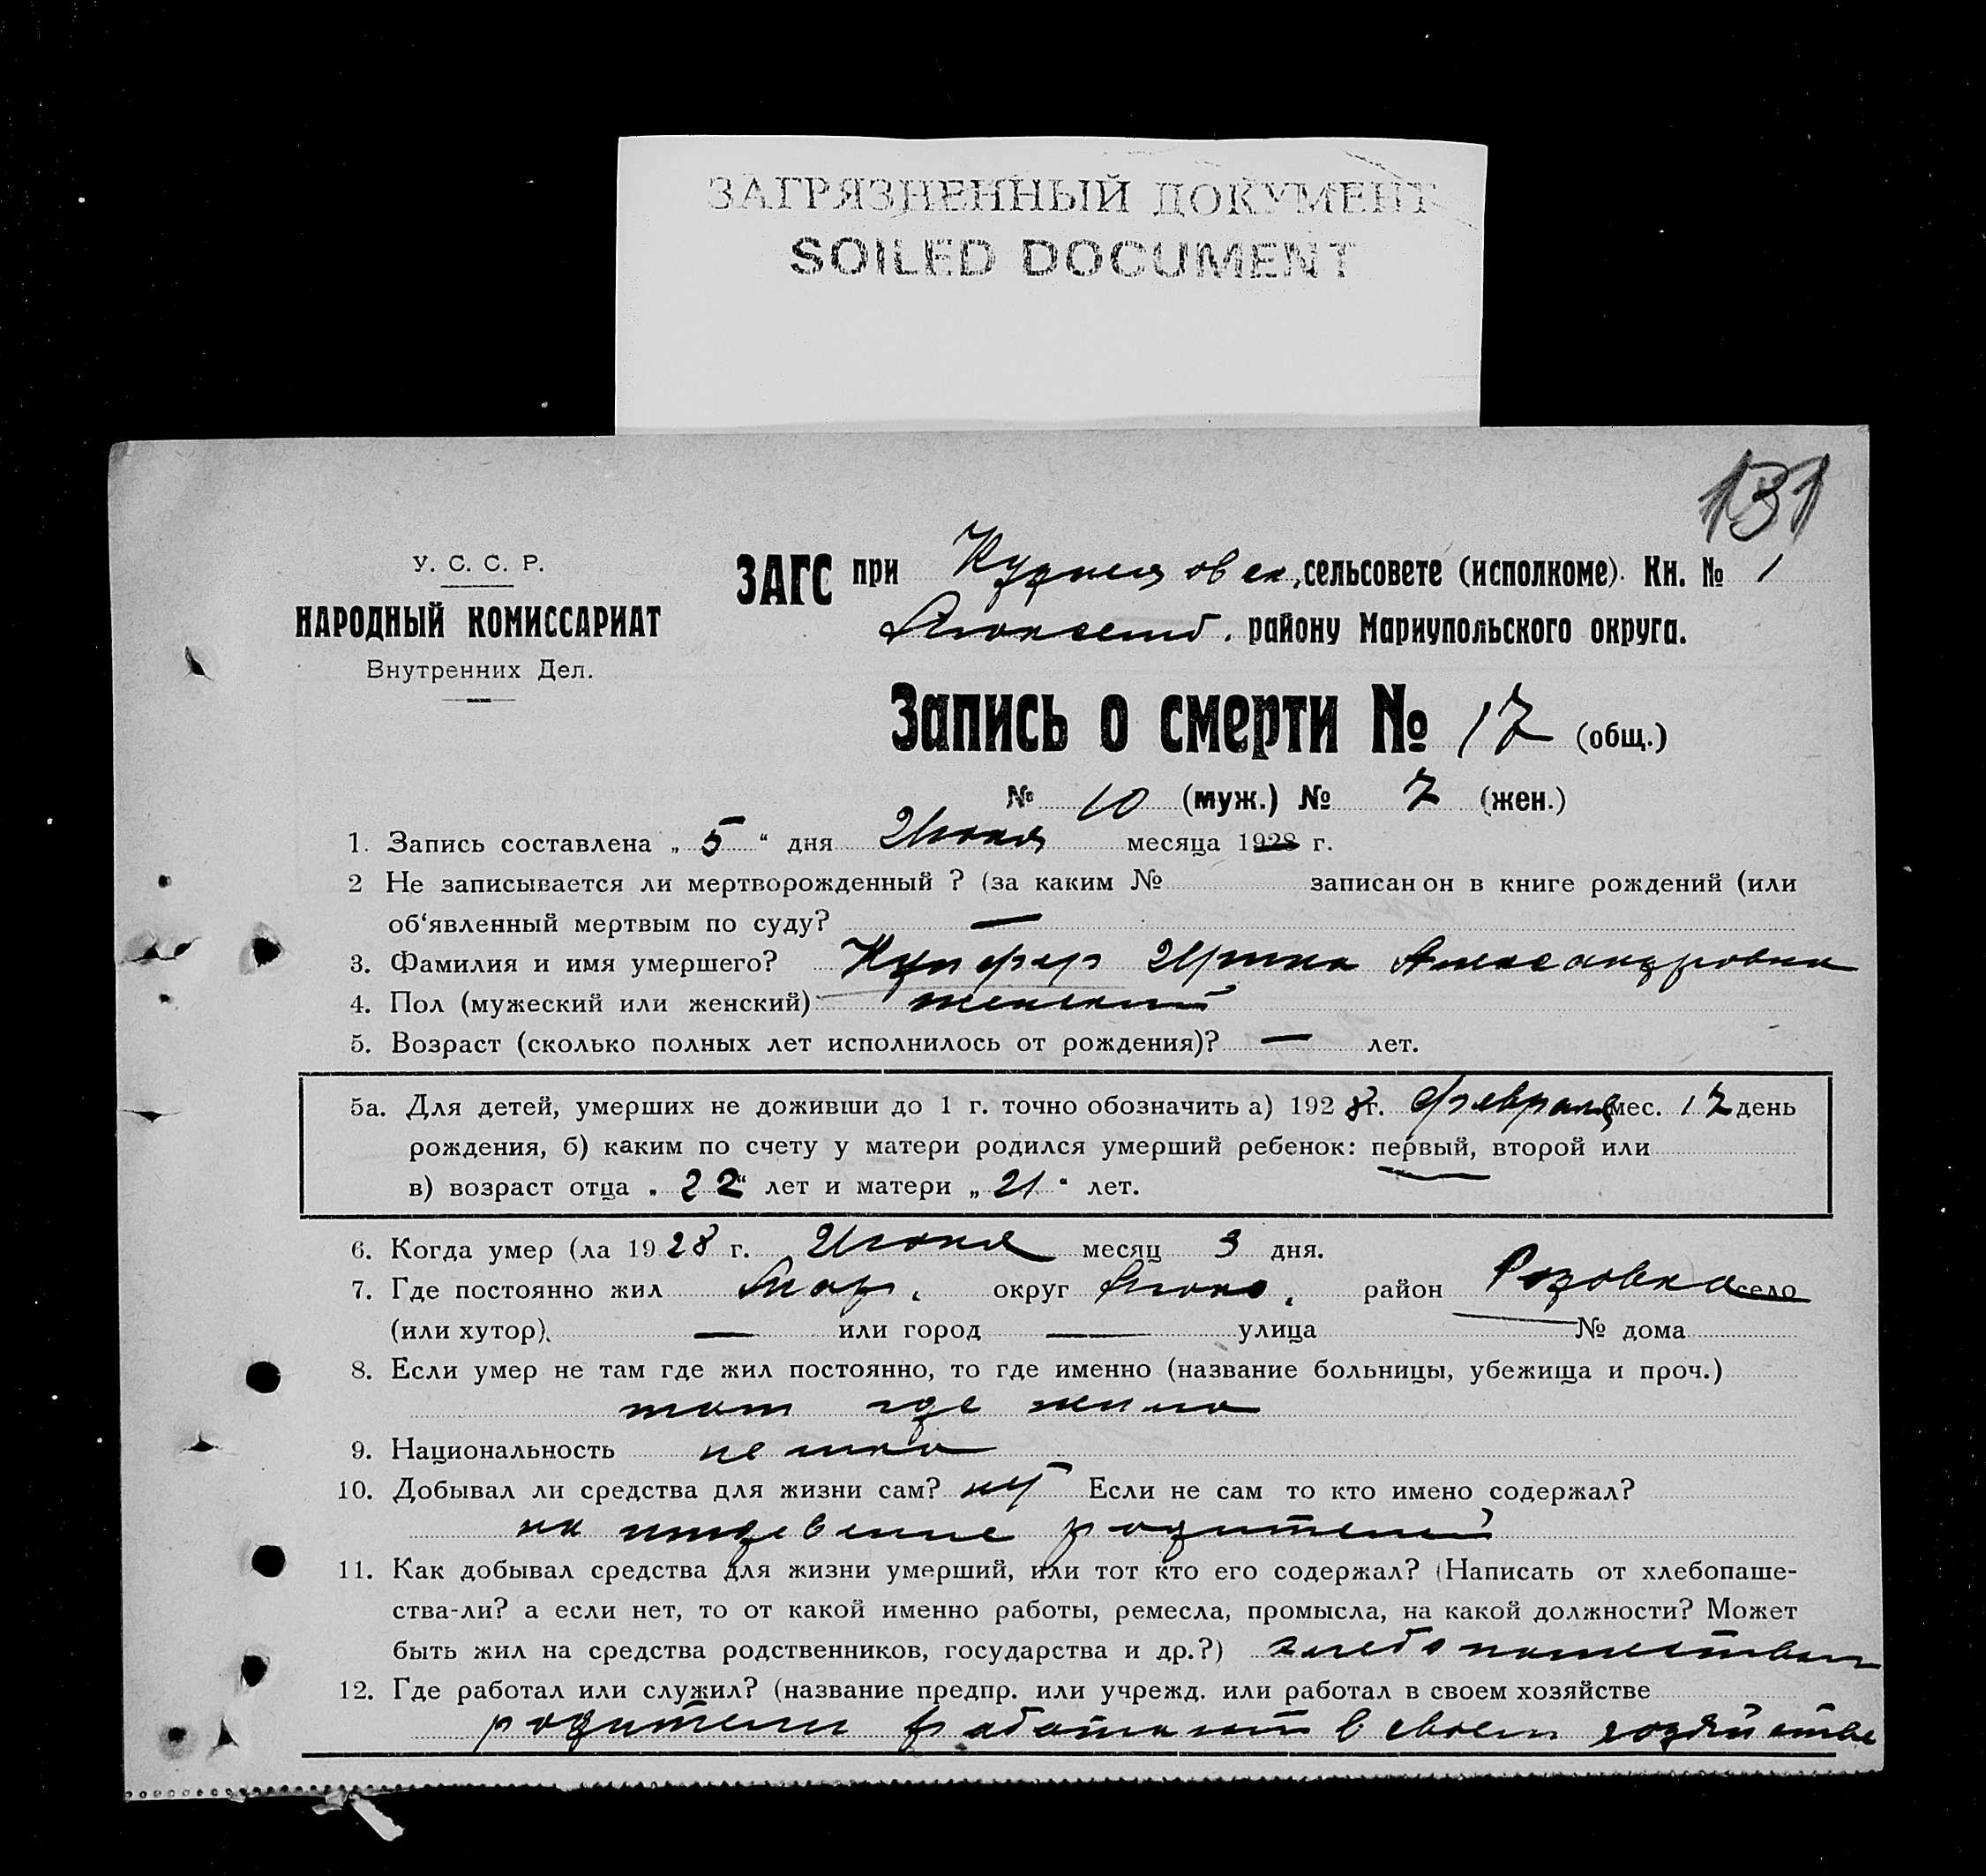 ЗАГРЯЗНЕННЫЙ ДОКУМЕНТ
SOILED DOCUMENT
131
У. С. С. Р.
НАРОДНЫЙ КОМИССАРИАТ
Внутренних Дел.
ЗАГС при Кузнецовск. сельсовете (исполкоме). Кн. № 1
району Мариупольского округа.
Запись о смерти № 17 (общ.)
№ 10 (муж.) № 7 (жен.)
1. Запись составлена „ 5 “ дня Июня месяца 1928 г.
2 Не записывается ли мертворожденный ? (за каким № записан он в книге рождений (или
об‘явленный мертвым по суду? —
3. Фамилия и имя умершего? Купфер Ирина Александровна
4. Пол (мужеский или женский) женский
5. Возраст (сколько полных лет исполнилось от рождения)? — лет.
5а. Для детей, умерших не доживши до 1 г. точно обозначить а) 1928 г. февраля мес. 17 день
рождения, б) каким по счету у матери родился умерший ребенок: первый, второй или
в) возраст отца „ 22 “ лет и матери „ 21 “ лет.
6. Когда умер (ла 1928 г. Июня месяц 3 дня.
7. Где постоянно жил Мар. округ Люкс. район Розовка село
(или хутор) — или город — улица — № дома
8. Если умер не там где жил постоянно, то где именно (название больницы, убежища и проч.)
там где жила
9. Национальность немка
10. Добывал ли средства для жизни сам? нет Если не сам то кто имено содержал?
на иждевение родителей
11. Как добывал средства для жизни умерший, или тот кто его содержал? (Написать от хлебопаше-
ства-ли? а если нет, то от какой именно работы, ремесла, промысла, на какой должности? Может
быть жил на средства родственников, государства и др.?) хлебопашеством
12. Где работал или служил? (название предпр. или учрежд. или работал в своем хозяйстве
родители работают в своем хозяйстве